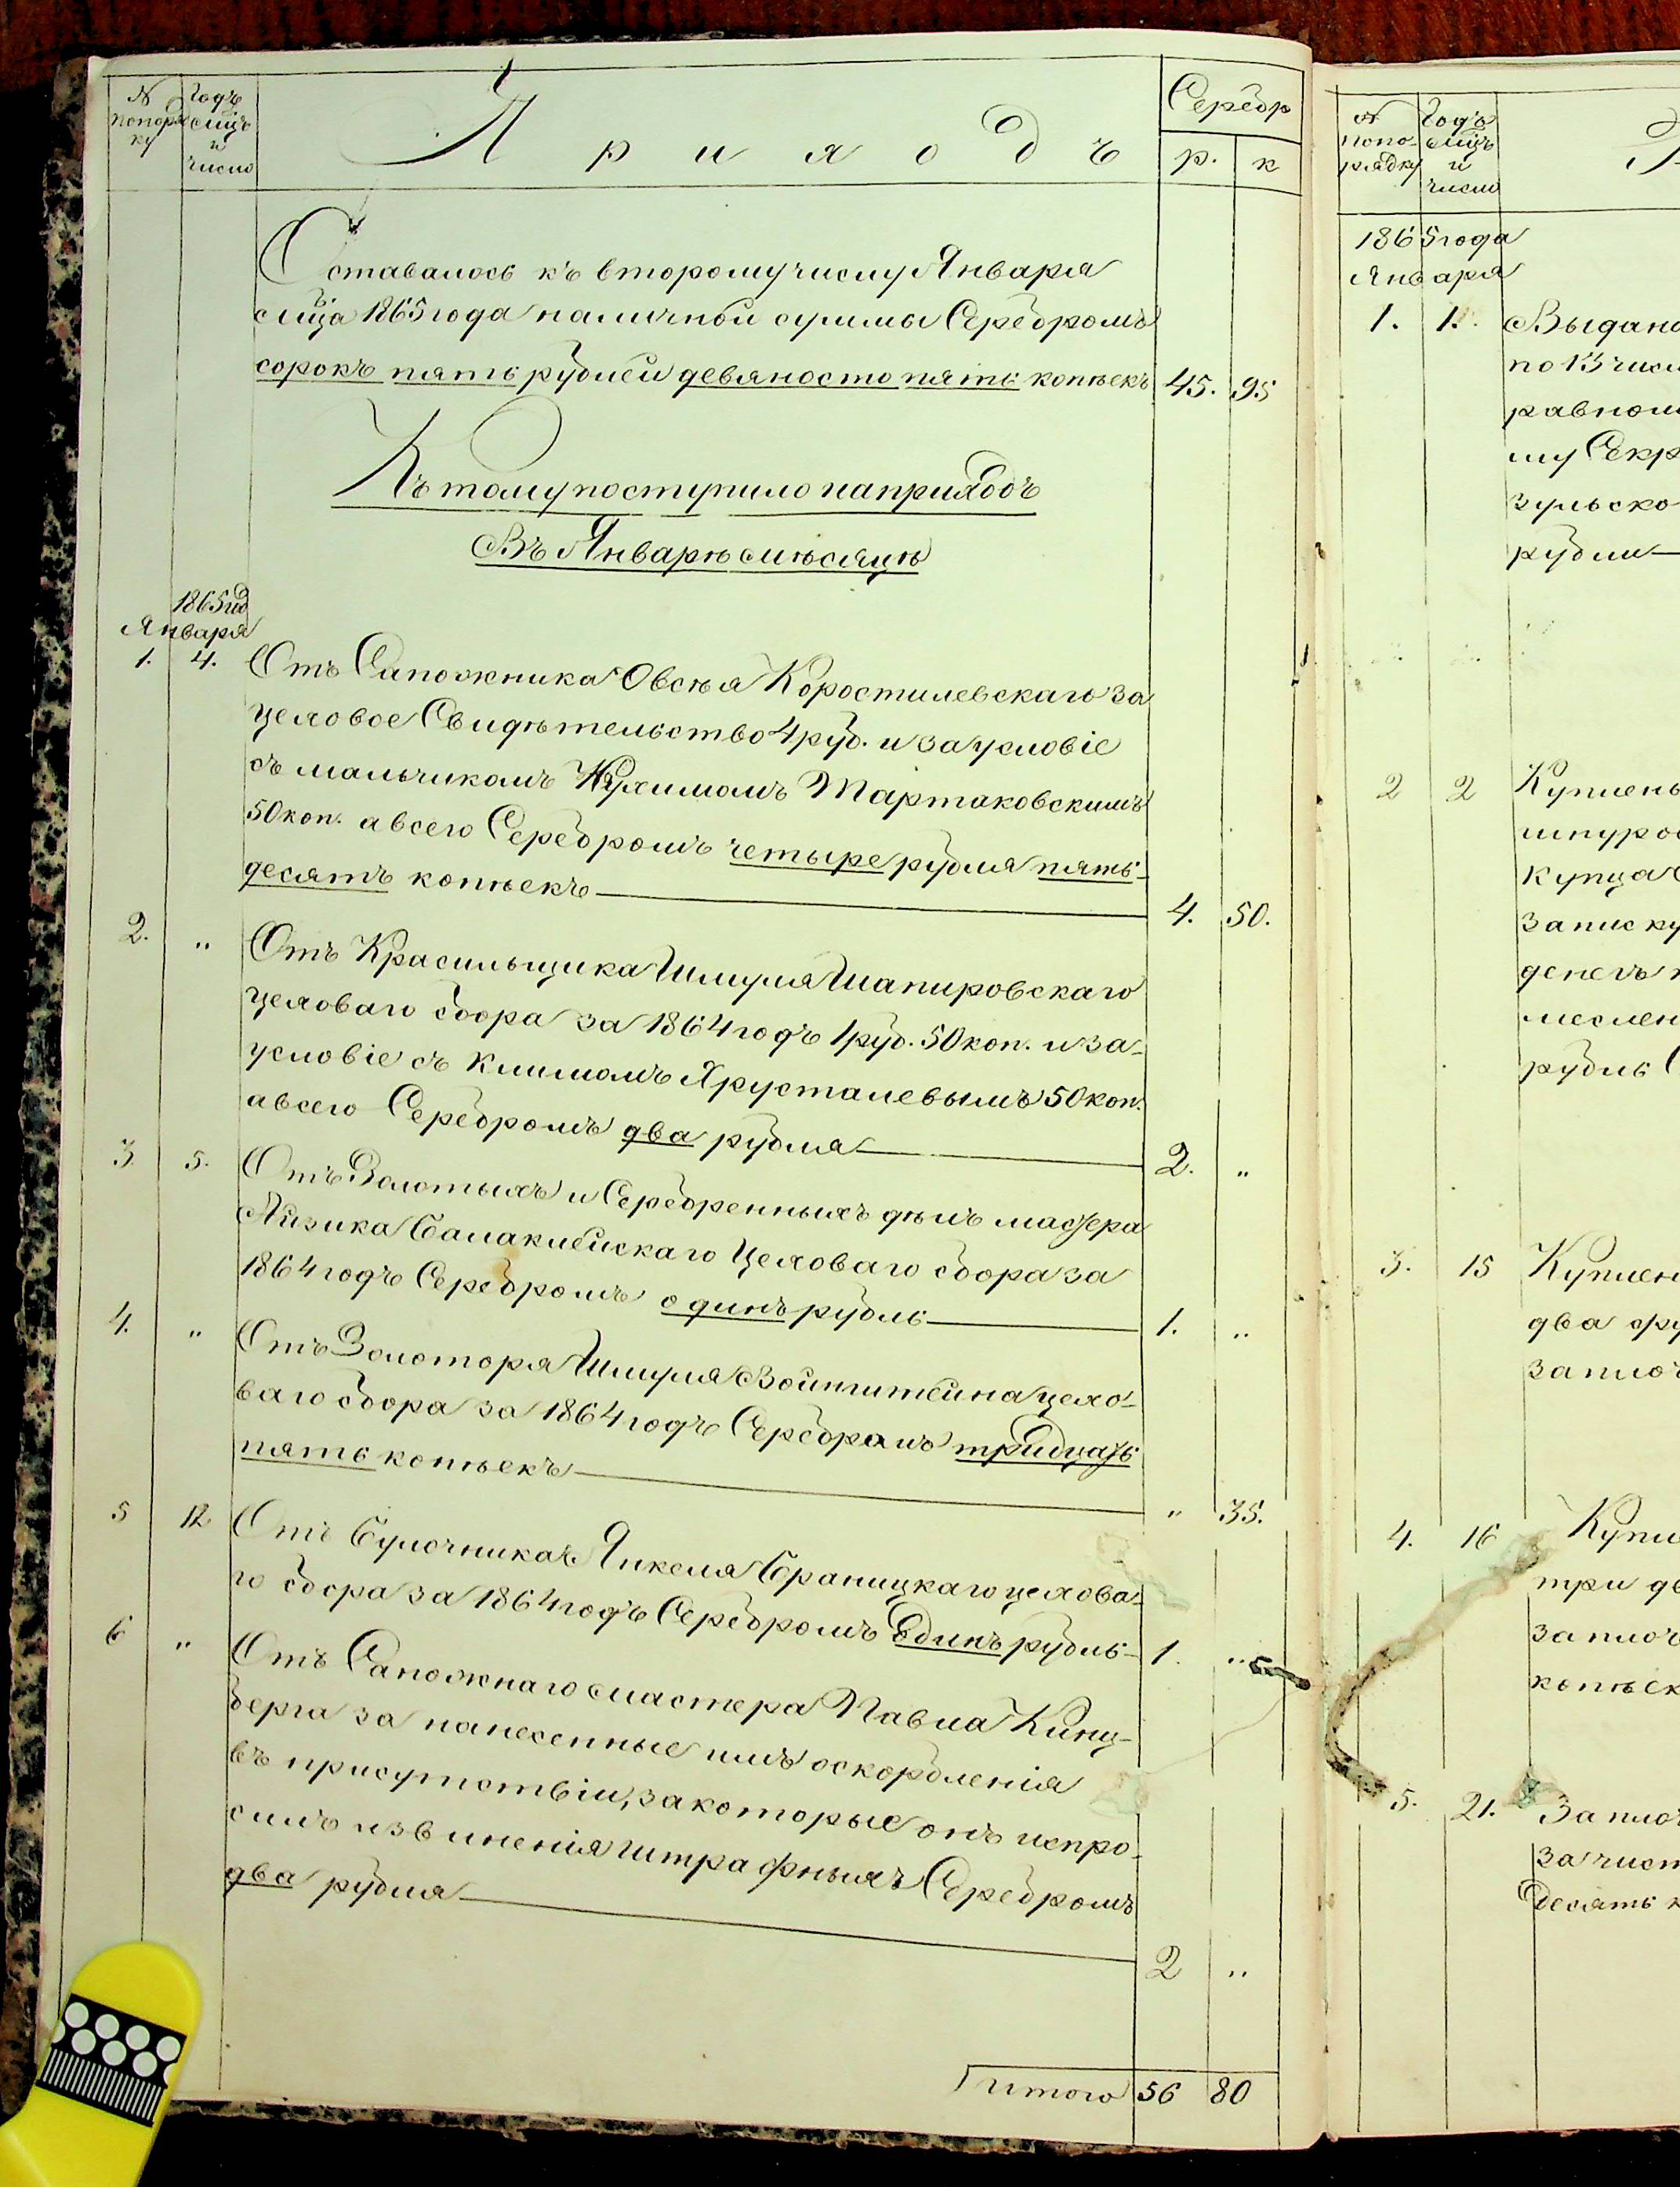 N
попоря
ку
Годъ
мцъ
и
число
Приходъ
Серебр
р.
к
Оставалось къ второму числу Января
мца 1865 года наличной суммы Серебромъ
сорокъ пять рублей девяносто пять копѣекъ 45. 95
Къ тому поступило на приходъ
Въ Январѣ мѣсяцѣ
1865 год
Января
1. 4. Отъ Сапожника Овсѣя Коростилевскаго за
цеховое Свидѣтельство 4 руб. и за условіе
съ мальчикомъ Нухимомъ Тартаковскимъ
50 коп. а всего Серебромъ четыре рубля пять-
десятъ копѣекъ 4. 50.
2. " Отъ Красильщика Шмуля Шапировскаго
цеховаго сбора за 1864 годъ 1 руб. 50 коп. и за-
условіе съ Климомъ Хрусталевымъ 50 коп.
а всего Серебромъ два рубля 2. "
3 5. Отъ Золотыхъ и Серебренныхъ дѣлъ мастера
Айзика Балаклейскаго Цеховаго сбора за
1864 годъ Серебромъ одинъ рубль 1. "
4. " Отъ Золотора Шмуля Вайнштейна цехо-
ваго сбора за 1864 годъ Серебромъ тридцать
пять копѣекъ " 35.
5 12 Отъ Булочника Янкеля Браницкаго цехова-
го сбора за 1864 годъ Серебромъ Одинъ рубль 1. "
6 " Отъ Сапожнаго мастера Павла Кинц-
берга за нанесенные имъ оскорбленія
въ присутствіи, за которые онъ испро-
силъ извиненія штрафныхъ Серебромъ
два рубля 2 "
Итого 56 80
N
попо-
рядку
Годъ
мцъ
и
число
1865 года
Января
1. 1. Выдано
по 13 числ
равном
му Секр
зульско
рубли
2 2 Куплены
шнуро
купца
записку
денегъ
меслен
рубль
3. 15 Куплен
два фу
заплоч
4. 16 Купле
три дв
заплоч
копѣек
5. 21. Заплоч
за чист
Десять к